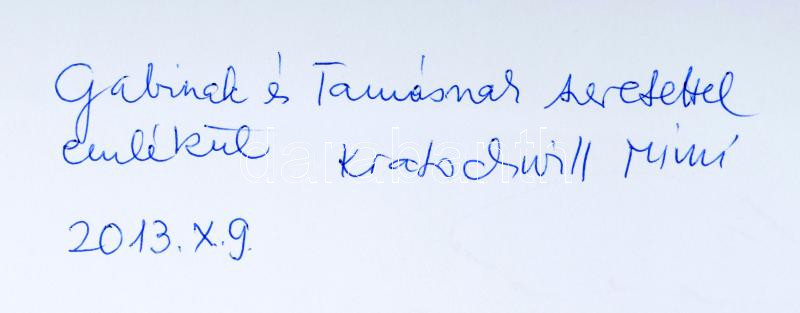 Gabinak és Tamásnak szeretettel
emlékül Kratochwill Mimi
darabanth
2013.X.9.